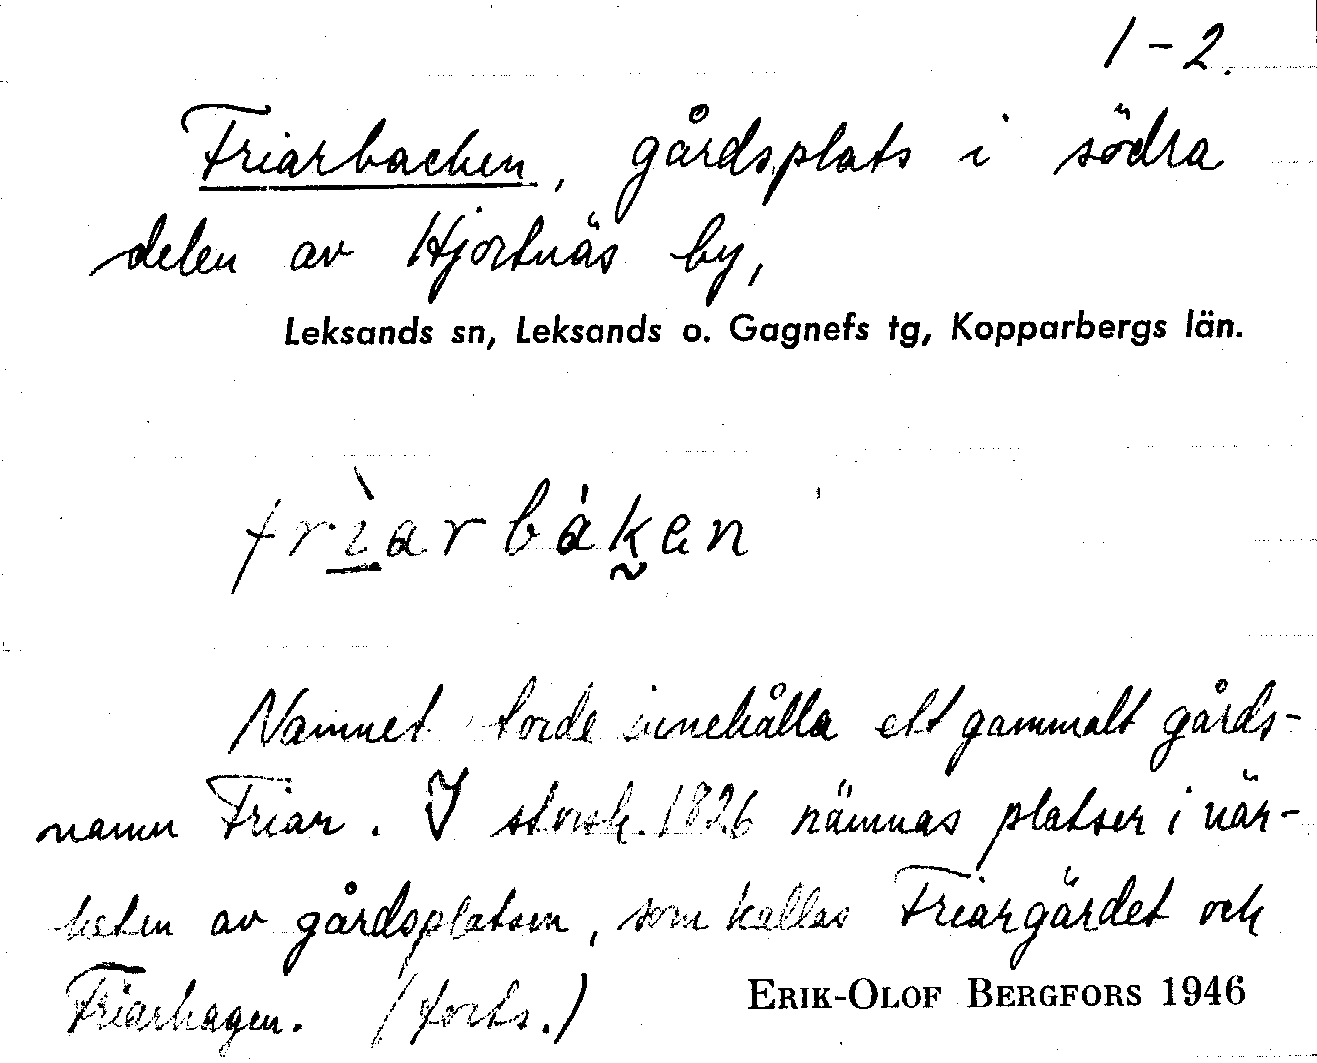 1-2.
Friarbacken, gårdsplats i södra
delen av Hjortnäs by,
Leksands sn, Leksands o. Gagnefs tg, Kopparbergs län.
frìarbàken
Namnet torde innehålla ett gammalt gårds-
namn Friar. I storsk. 1826 nämnas platser i när-
heten av gårdsplatsen, som kallas Friargärdet och
Friarhagen. (forts.)
ERIK-OLOF BERGFORS 1946